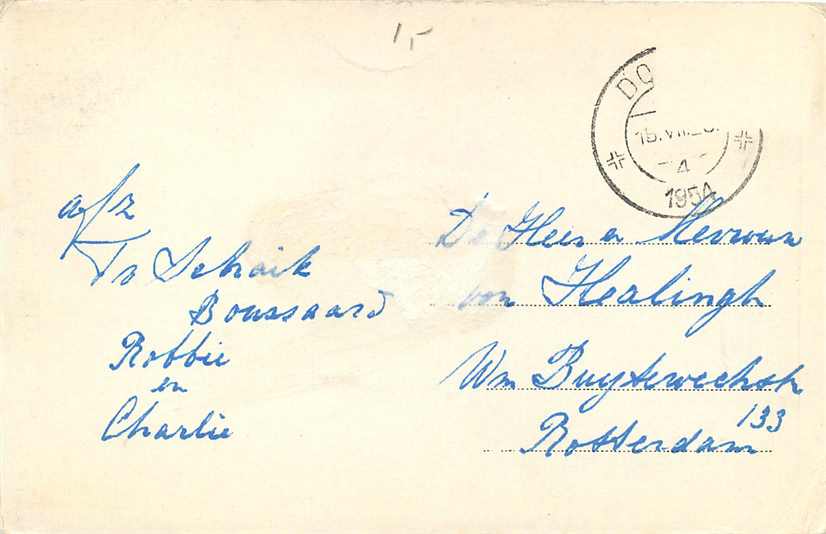 1,-
DO
15.VII.23.
4
1954
afz
Tv Schaik
Boussaard
Robbie
en
Charlie
De Heer en Mevrouw
von Healingh
Wm Buytewechstr
133
Rotterdam